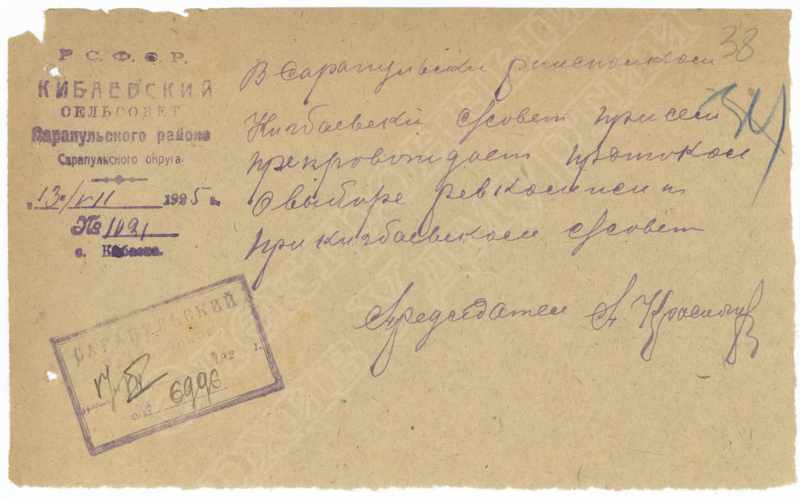 Р С. Ф. С. Р.
КИБАЕВСКИЙ
СЕЛЬСОВЕТ
Сарапульского района
Сарапульского округа.
13/VII 1925 г.
№ 1091
с. Кибаево
38
34
В Сарапульски риксполком
Кигбаевский с/совет при сем
препровождает протокол
О выборе ревкомиси и
при кигбаевском с/совет
Председател А.
САРАПУЛЬСКИЙ
192 г.
№ 6996